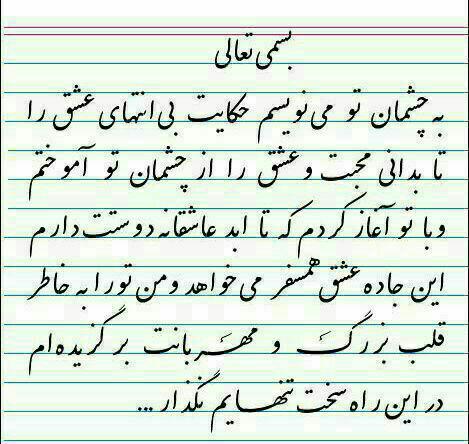 بسمی تعالی
به چشمان تو می‌نویسم حکایت بی‌انتهای عشق را
تا بدانی محبت و عشق را از چشمان تو آموختم
وبا تو آغاز کردم که تا ابد عاشقانه دوستت دارم
این جاده عشق همسفر می‌خواهد ومن تورا به خاطر
قلب بزرگ و مهربانت برگزیده‌ام
در این راه سخت تنهایم نگذار...